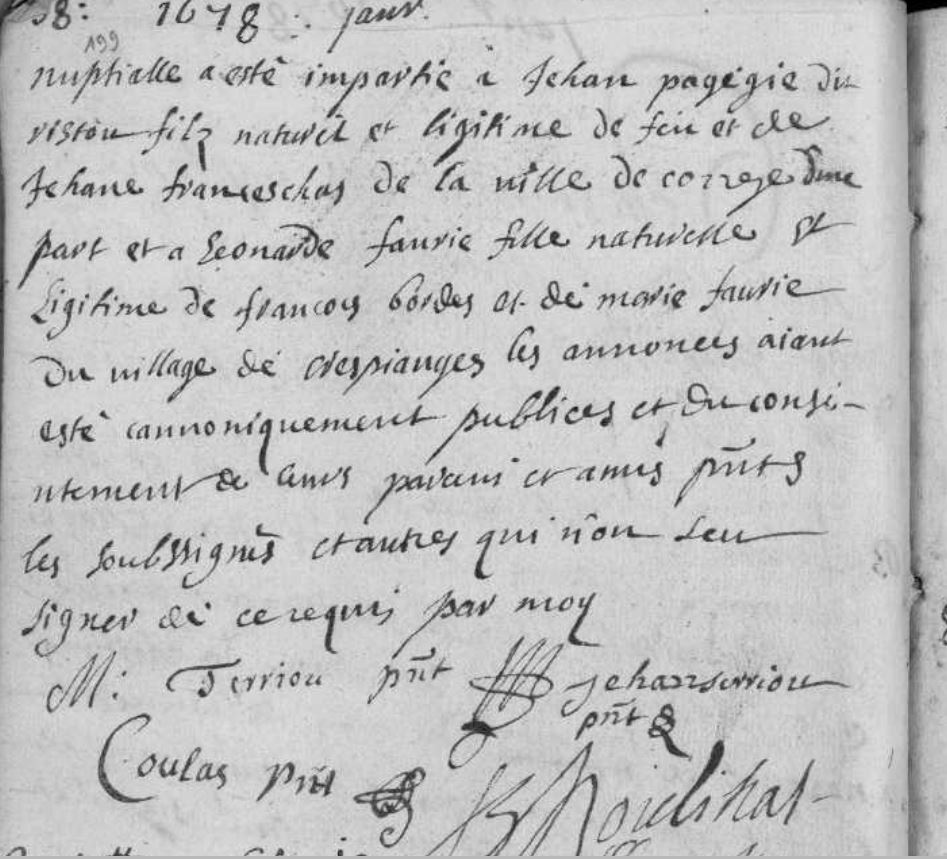 58: 1678: janv.
199
nuptialle a esté impartie a Jehan pagégie dit
ristou filz naturel et ligitime de feu et de
Jehane franceschas de la ville de correze dune
part et a Leonarde faurie fille naturelle et
Ligitime de francoys bordes et de marie faurie
Du village de crespianges les annonces aiant
esté cannoniquement publices et du consé-
ntement de leurs parans et amis pnts
les soubssignés et autres qui n'on seu
signer de ce requis par moy
M: Terriou pnt Jehan serriou
pnt
Coulas pnt